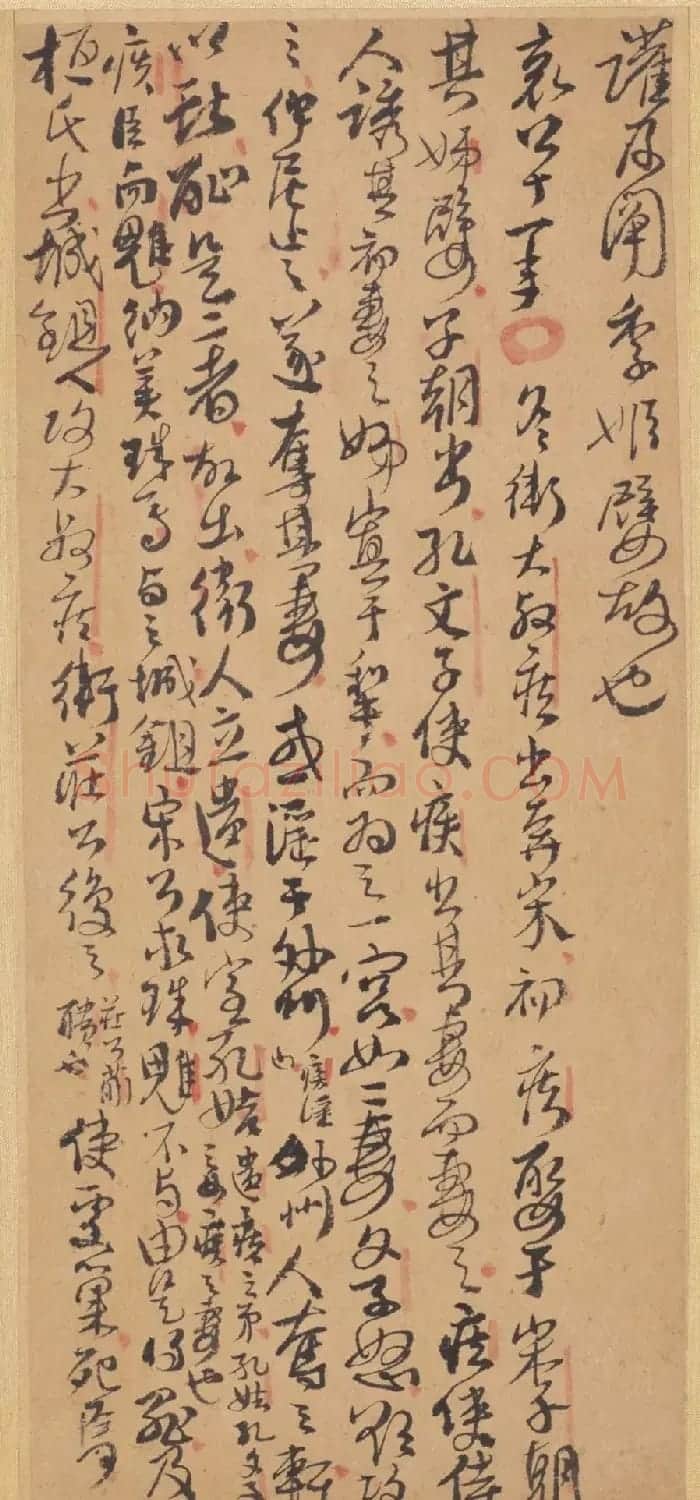 讙及闡季姬嬖故也
哀公十一年 冬衛大叔疾出奔宋初疾娶于宋子朝
其娣嬖子朝出孔文子使疾出其妻而妻之疾使侍
人誘其初妻之娣寘于犂而為之一宮如二妻文子怒欲攻
之仲尼止之遂奪其妻或淫于外州 疾淫也 外州人奪之軒
以獻恥是二者故出衛人立遺使室孔姞 遺疾之弟孔姞孔文子之女疾之妻也
疾臣向魋納美珠焉與之城鉏宋公求珠魋不與由是得罪及
桓氏出城鉏人攻大叔疾衛莊公復之 莊公蒯聵也 使處巢死焉
shufaziliao.COM